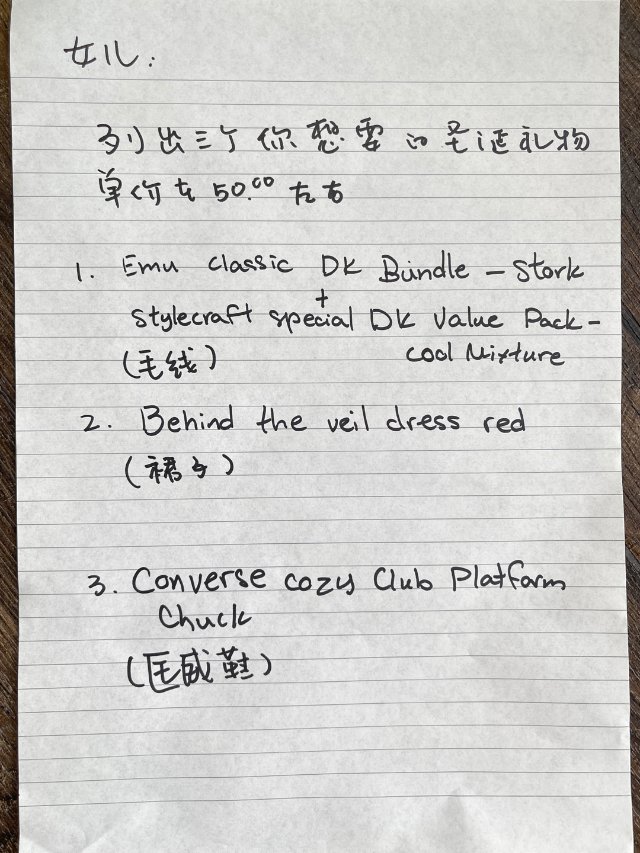 女儿:
列出三个你想要的圣诞礼物
单价在 50.00 左右
1. Emu Classic DK Bundle - Stork
+
Stylecraft special DK Value Pack -
Cool Mixture
(毛线)
2. Behind the veil dress red
(裙子)
3. Converse cozy Club Platform
Chuck
(匡威鞋)